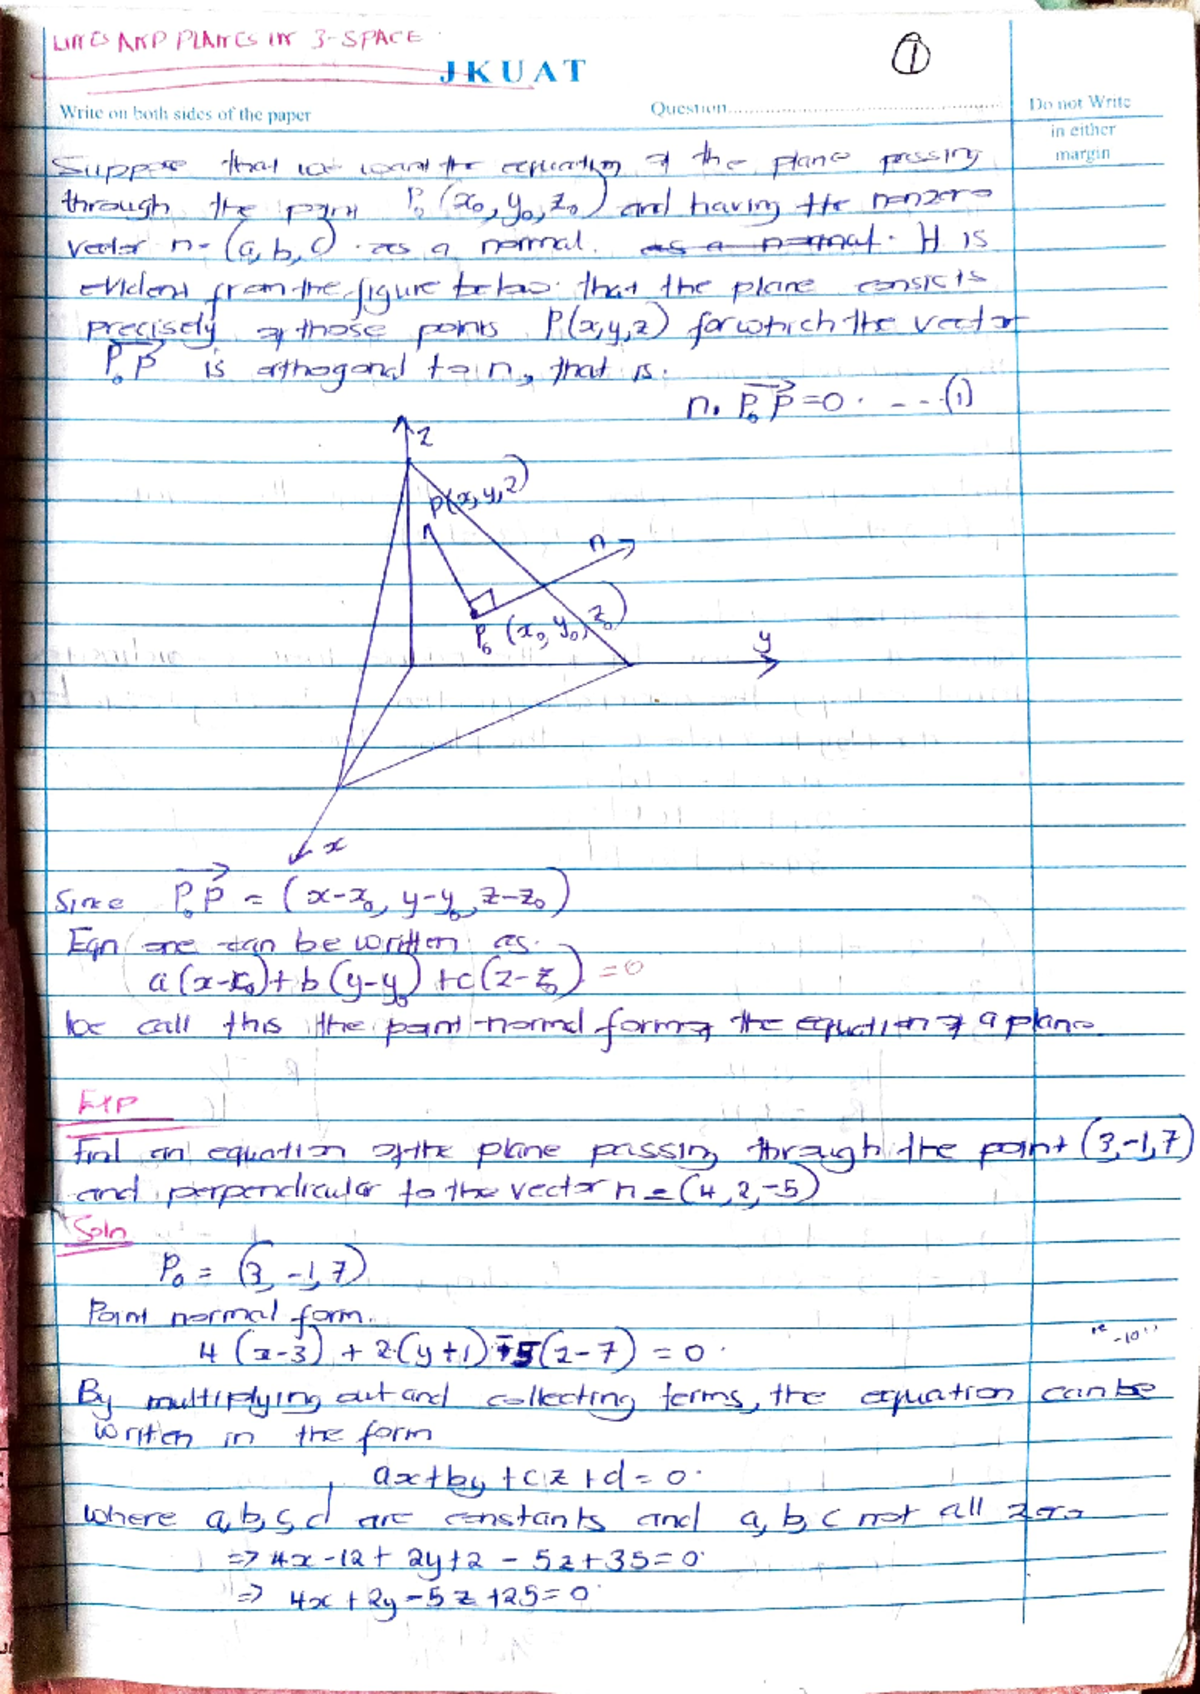 LINES AND PLANES IN 3-SPACE.
①
JKUAT
Write on both sides of the paper
Question
Do not Write
in either
margin
Suppose that we want the equation of the plane passing
through the point P₀(x₀, y₀, z₀) and having the nonzero
vector n = (a, b, c) as a normal. as a normal. It is
evident from the figure below that the plane consists
precisely of those points P(x, y, z) for which the vector
P₀P is orthogonal to n, that is.
n. P₀P = 0. - - - (1)
z
P(x, y, z)
n
P₀ (x₀, y₀, z₀)
y
x
Since P₀P = (x-x₀, y-y₀, z-z₀)
Eqn one can be written as.
a(x-x₀) + b(y-y₀) + c(z-z₀) = 0
We call this the point-normal form of the equation of a plane.
Exp
Find an equation of the plane passing through the point (3, -1, 7)
and perpendicular to the vector n = (4, 2, -5)
Soln
P₀ = (3, -1, 7)
Point normal form.
4(x-3) + 2(y+1) -5(z-7) = 0.
By multiplying out and collecting terms, the equation can be
written in the form
ax+by+cz+d=0.
where a, b, c, d are constants and a, b, c not all zero
=> 4x-12+2y+2-5z+35=0.
=> 4x+2y-5z+25=0